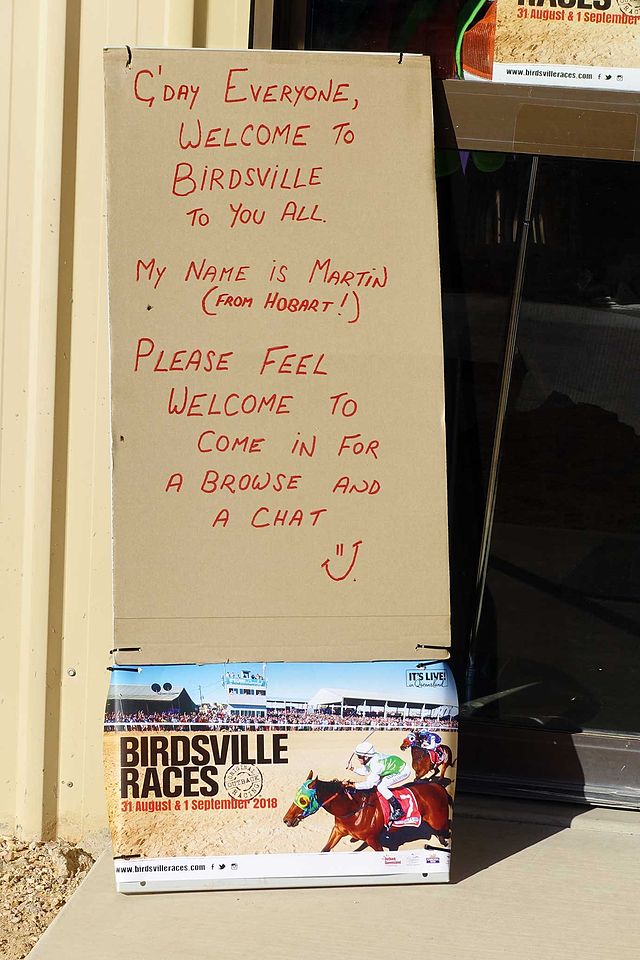 G'DAY EVERYONE,
WELCOME TO
BIRDSVILLE
TO YOU ALL.
MY NAME IS MARTIN
(FROM HOBART!)
PLEASE FEEL
WELCOME TO
COME IN FOR
A BROWSE AND
A CHAT
IT'S LIVE!
in Queensland
BIRDSVILLE
RACES
31 August & 1 September 2018
www.birdsvilleraces.com
RACES
31 August & 1 September
www.birdsvilleraces.com